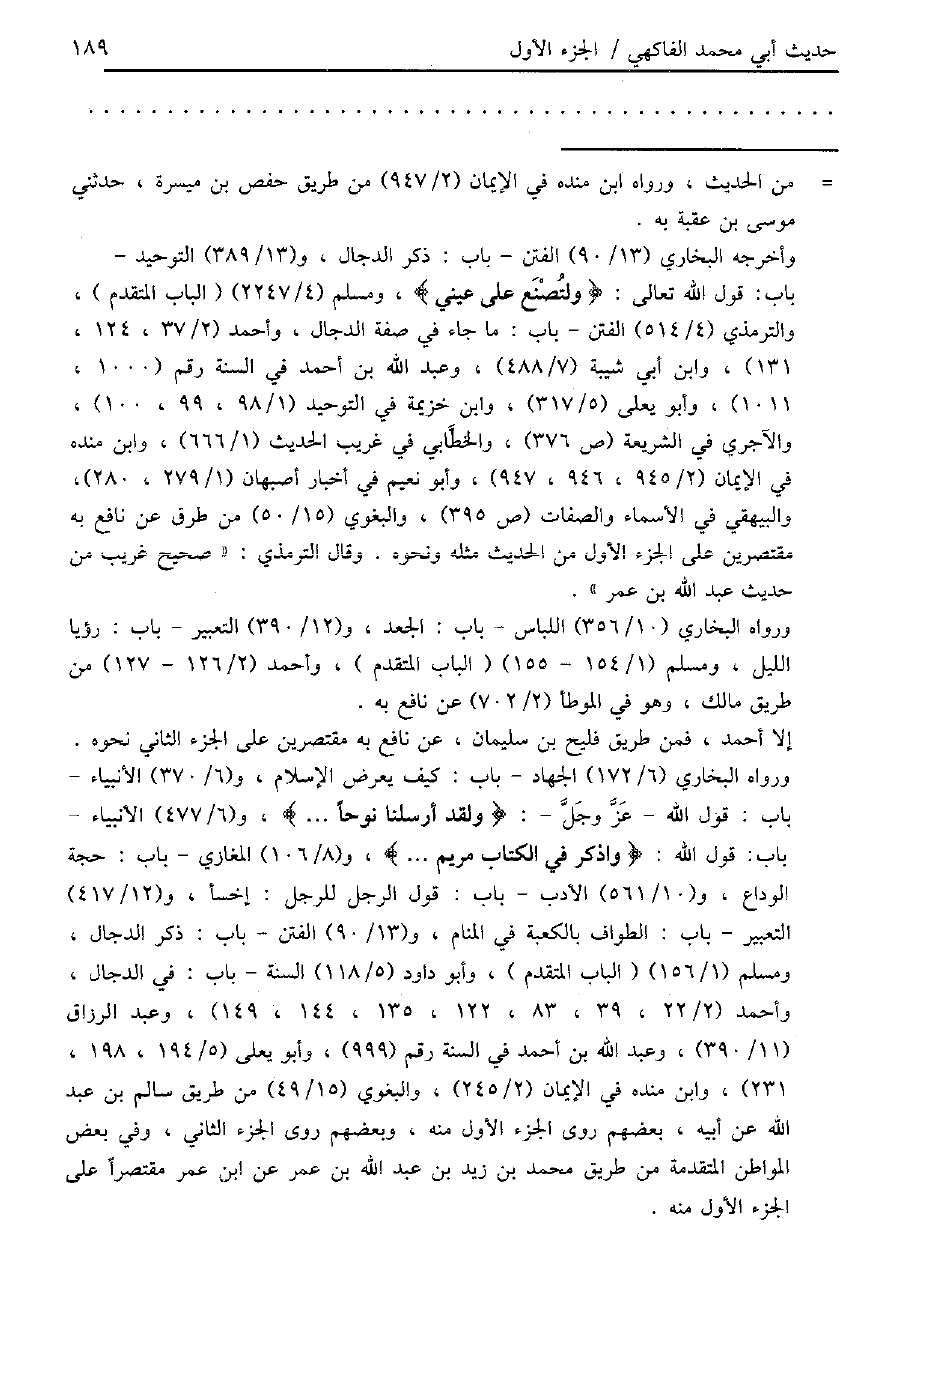 حديث أبي محمد الفاكهي / الجزء الأول ١٨٩
= من الحديث ، ورواه ابن منده في الإيمان (٩٤٧/٢) من طريق حفص بن ميسرة ، حدثني
موسى بن عقبة به .
وأخرجه البخاري (٩٠/١٣) الفتن – باب : ذكر الدجال ، و(٣٨٩/١٣) التوحيد –
باب: قول الله تعالى : ﴿ ولتُصْنَع على عيني ﴾ ، ومسلم (٢٢٤٧/٤) ( الباب المتقدم ) ،
والترمذي (٥١٤/٤) الفتن – باب : ما جاء في صفة الدجال ، وأحمد (٣٧/٢ ، ١٢٤ ،
١٣١) ، وابن أبي شيبة (٤٨٨/٧) ، وعبد الله بن أحمد في السنة رقم (١٠٠٠ ،
١٠١١) ، وأبو يعلى (٣١٧/٥) ، وابن خزيمة في التوحيد (٩٨/١ ، ٩٩ ، ١٠٠) ،
والآجري في الشريعة (ص ٣٧٦) ، والخطَّابي في غريب الحديث (٦٦٦/١) ، وابن منده
في الإيمان (٩٤٥/٢ ، ٩٤٦ ، ٩٤٧) ، وأبو نعيم في أخبار أصبهان (٢٧٩/١ ، ٢٨٠)،
والبيهقي في الأسماء والصفات (ص ٣٩٥) ، والبغوي (٥٠/١٥) من طرق عن نافع به
مقتصرين على الجزء الأول من الحديث مثله ونحوه . وقال الترمذي : « صحيح غريب من
حديث عبد الله بن عمر » .
ورواه البخاري (٣٥٦/١٠) اللباس – باب : الجعد ، و(٣٩٠/١٢) التعبير – باب : رؤيا
الليل ، ومسلم (١٥٤/١ – ١٥٥) ( الباب المتقدم ) ، وأحمد (١٢٦/٢ – ١٢٧) من
طريق مالك ، وهو في الموطأ (٧٠٢/٢) عن نافع به .
إلا أحمد ، فمن طريق فليح بن سليمان ، عن نافع به مقتصرين على الجزء الثاني نحوه .
ورواه البخاري (١٧٢/٦) الجهاد – باب : كيف يعرض الإسلام ، و(٣٧٠/٦) الأنبياء –
باب : قول الله – عَزَّ وجَلَّ – : ﴿ ولقد أرسلنا نوحاً ... ﴾ ، و(٤٧٧/٦) الأنبياء –
باب: قول الله : ﴿ واذكر في الكتاب مريم ... ﴾ ، و(١٠٦/٨) المغازي – باب : حجة
الوداع ، و(٥٦١/١٠) الأدب – باب : قول الرجل للرجل : إخسأ ، و(٤١٧/١٢)
التعبير – باب : الطواف بالكعبة في المنام ، و(٩٠/١٣) الفتن – باب : ذكر الدجال ،
ومسلم (١٥٦/١) ( الباب المتقدم ) ، وأبو داود (١١٨/٥) السنة – باب : في الدجال ،
وأحمد (٢٢/٢ ، ٣٩ ، ٨٣ ، ١٢٢ ، ١٣٥ ، ١٤٤ ، ١٤٩) ، وعبد الرزاق
(٣٩٠/١١) ، وعبد الله بن أحمد في السنة رقم (٩٩٩) ، وأبو يعلى (١٩٤/٥ ، ١٩٨ ،
٢٣١) ، وابن منده في الإيمان (٢٤٥/٢) ، والبغوي (٤٩/١٥) من طريق سالم بن عبد
الله عن أبيه ، بعضهم روى الجزء الأول منه ، وبعضهم روى الجزء الثاني ، وفي بعض
المواطن المتقدمة من طريق محمد بن زيد بن عبد الله بن عمر عن ابن عمر مقتصراً على
الجزء الأول منه .